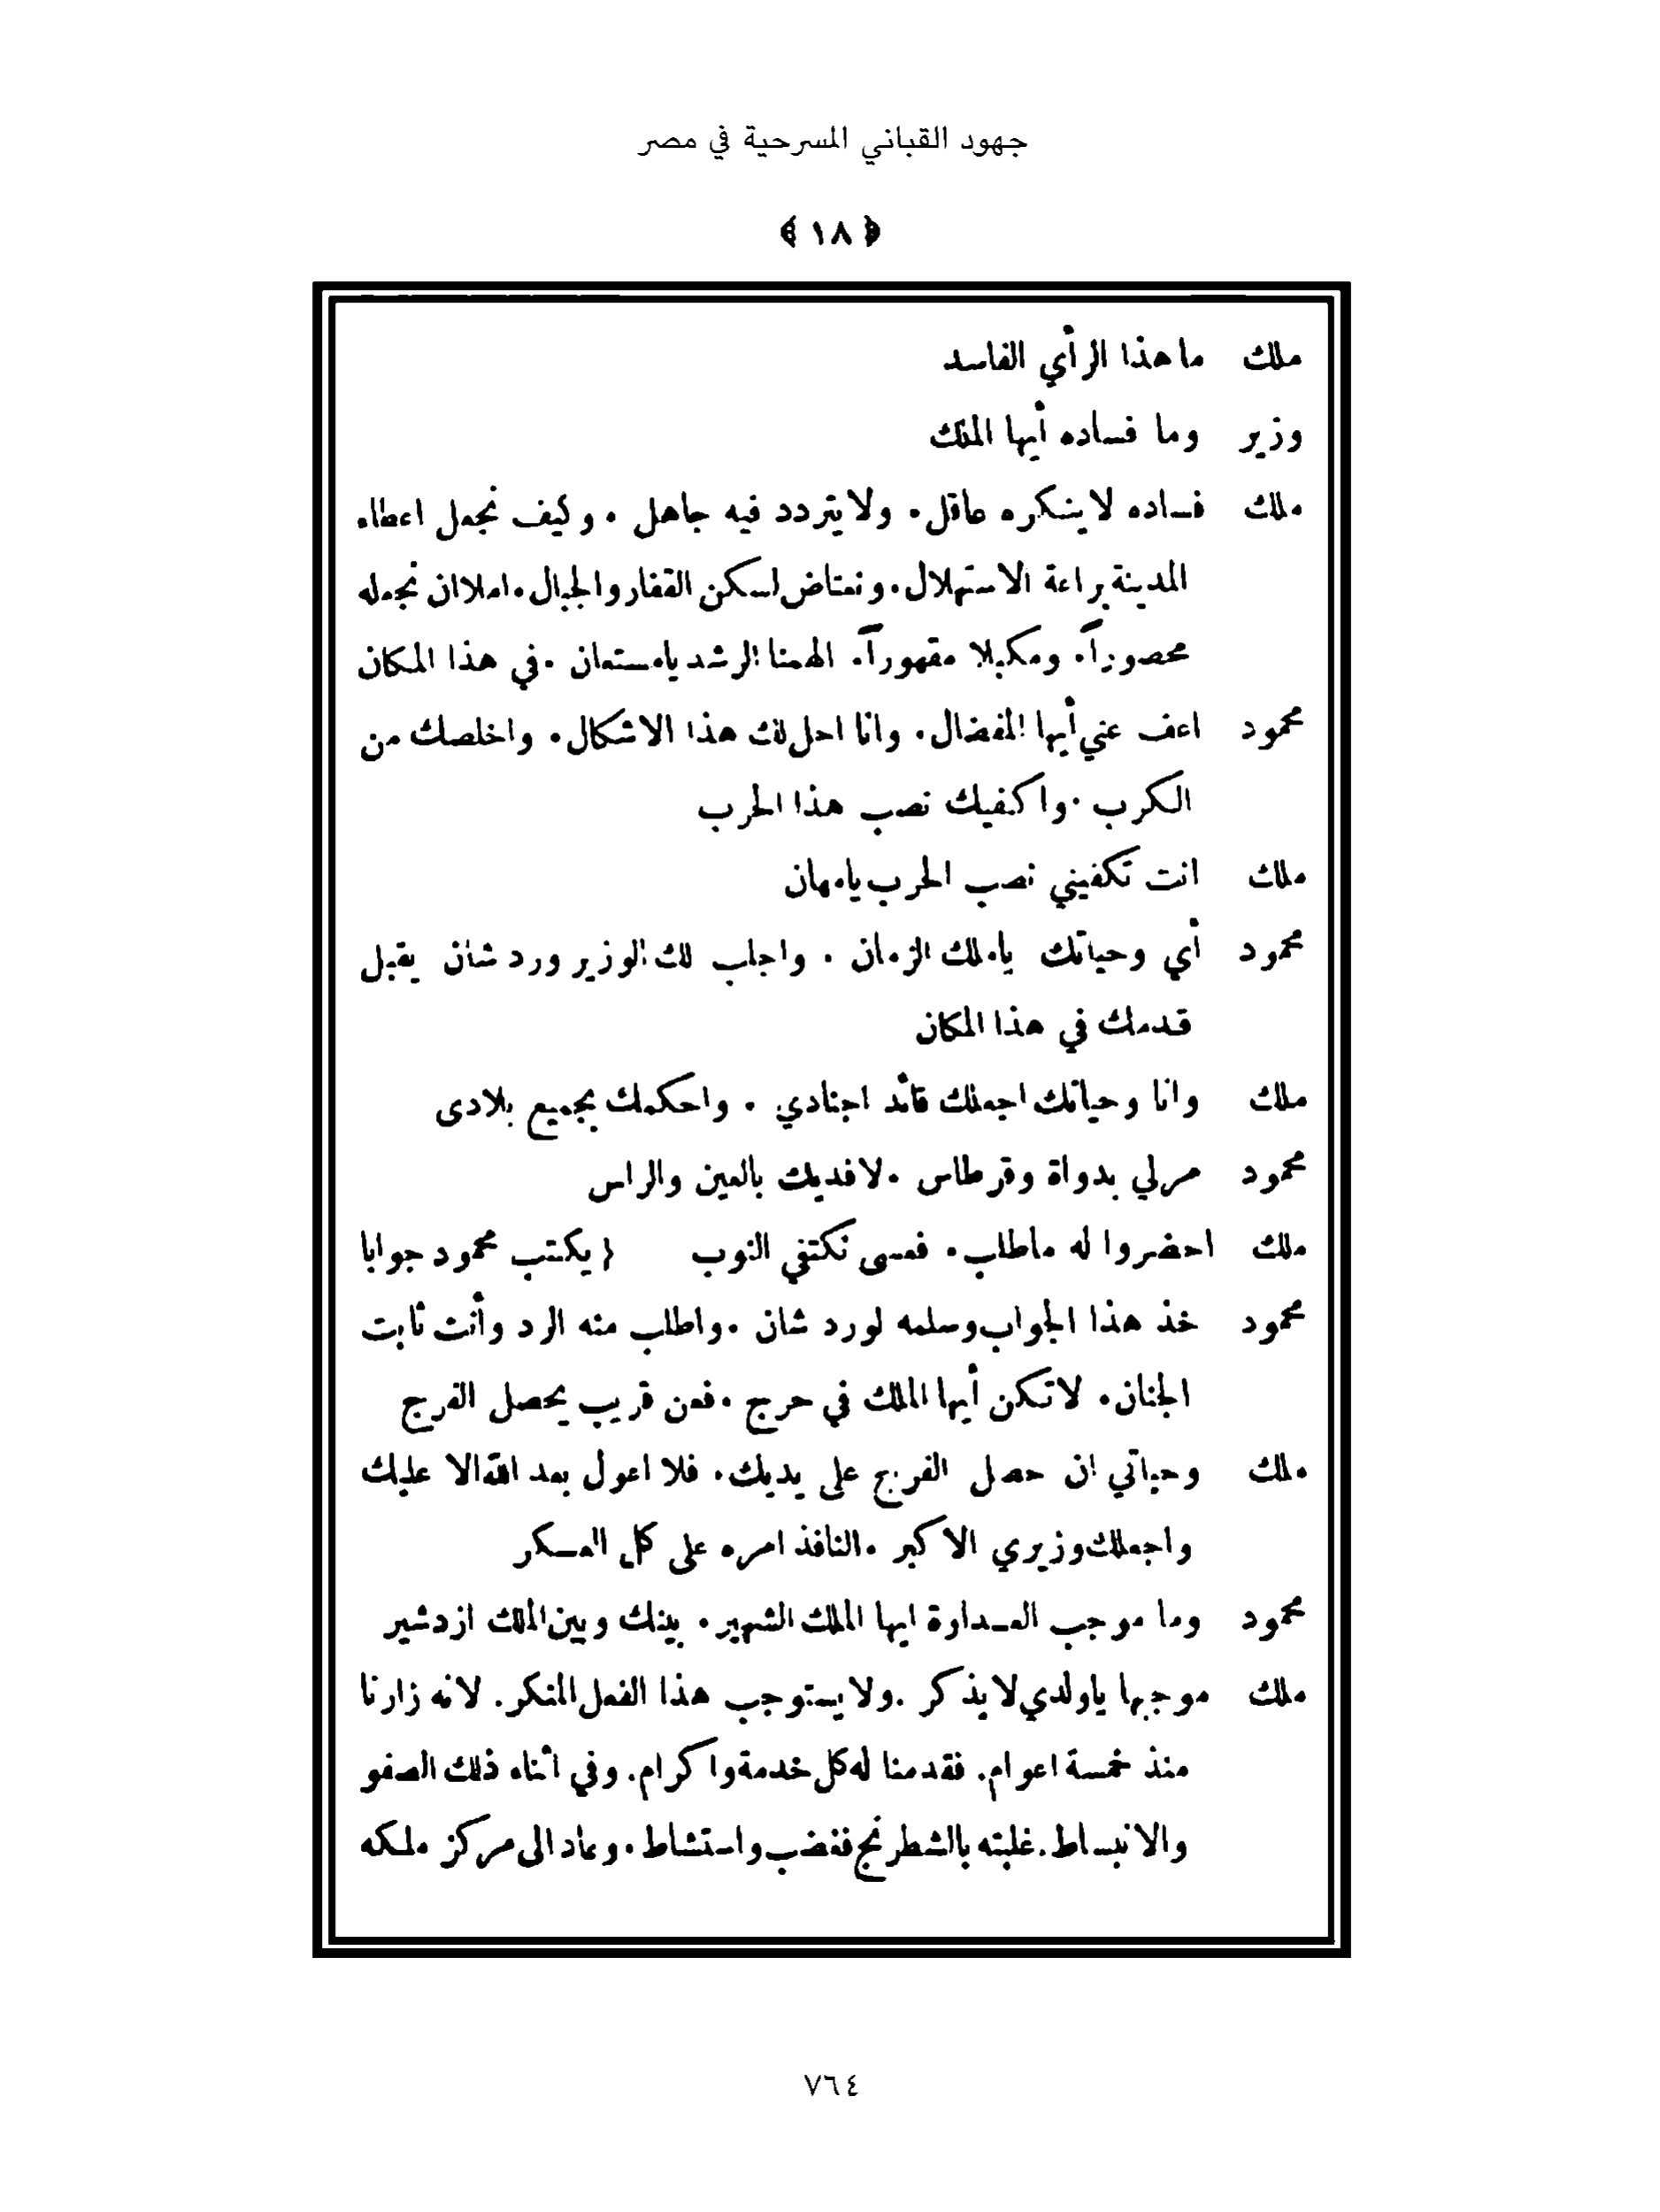 جهود القباني المسرحية في مصر
﴿ ١٨ ﴾
ملك ما هذا الرأي الفاسد
وزير وما فساده أيها الملك
ملك فساده لا ينكره عاقل. ولا يتردد فيه جاهل. وكيف نجعل اعطاء
المدينة براعة الاستهلال. ونعتاض لسكن القفار والجبال. املا ان نجعله
محصوراً. ومكبلا مقهوراً. الهمنا الرشد يا مستعان. في هذا المكان
محمود اعف عني أيها المفضال. وانا احل لك هذا الاشكال. واخلصك من
الكرب. واكفيك نصب هذا الحرب
ملك انت تكفيني نصب الحرب يا مهان
محمود أي وحياتك يا ملك الزمان. واجلب لك الوزير ورد شان يقبل
قدمك في هذا المكان
ملك وانا وحياتك اجعلك قائد اجنادي. واحكمك بجميع بلادى
محمود مر لي بدواة وقرطاس. لافديك بالعين والراس
ملك احضروا له ما طلب. فعسى نكتفي النوب { يكتب محمود جوابا
محمود خذ هذا الجواب وسلمه لورد شان. واطلب منه الرد وأنت ثابت
الجنان. لا تكن أيها الملك في حرج. فعن قريب يحصل الفرج
ملك وحياتي ان حصل الفرج على يديك. فلا اعول بعد الله الا عليك
واجعلك وزيري الاكبر. النافذ امره على كل العسكر
محمود وما موجب العداوة ايها الملك الشهير. بينك وبين الملك ازدشير
ملك موجبها يا ولدي لا يذكر. ولا يستوجب هذا الفعل المنكر. لانه زارنا
منذ خمسة اعوام. فقدمنا له كل خدمة واكرام. وفي اثناء ذلك الصفو
والانبساط. غلبته بالشطرنج فغضب واستشاط. وعاد الى مركز ملكه
٧٦٤